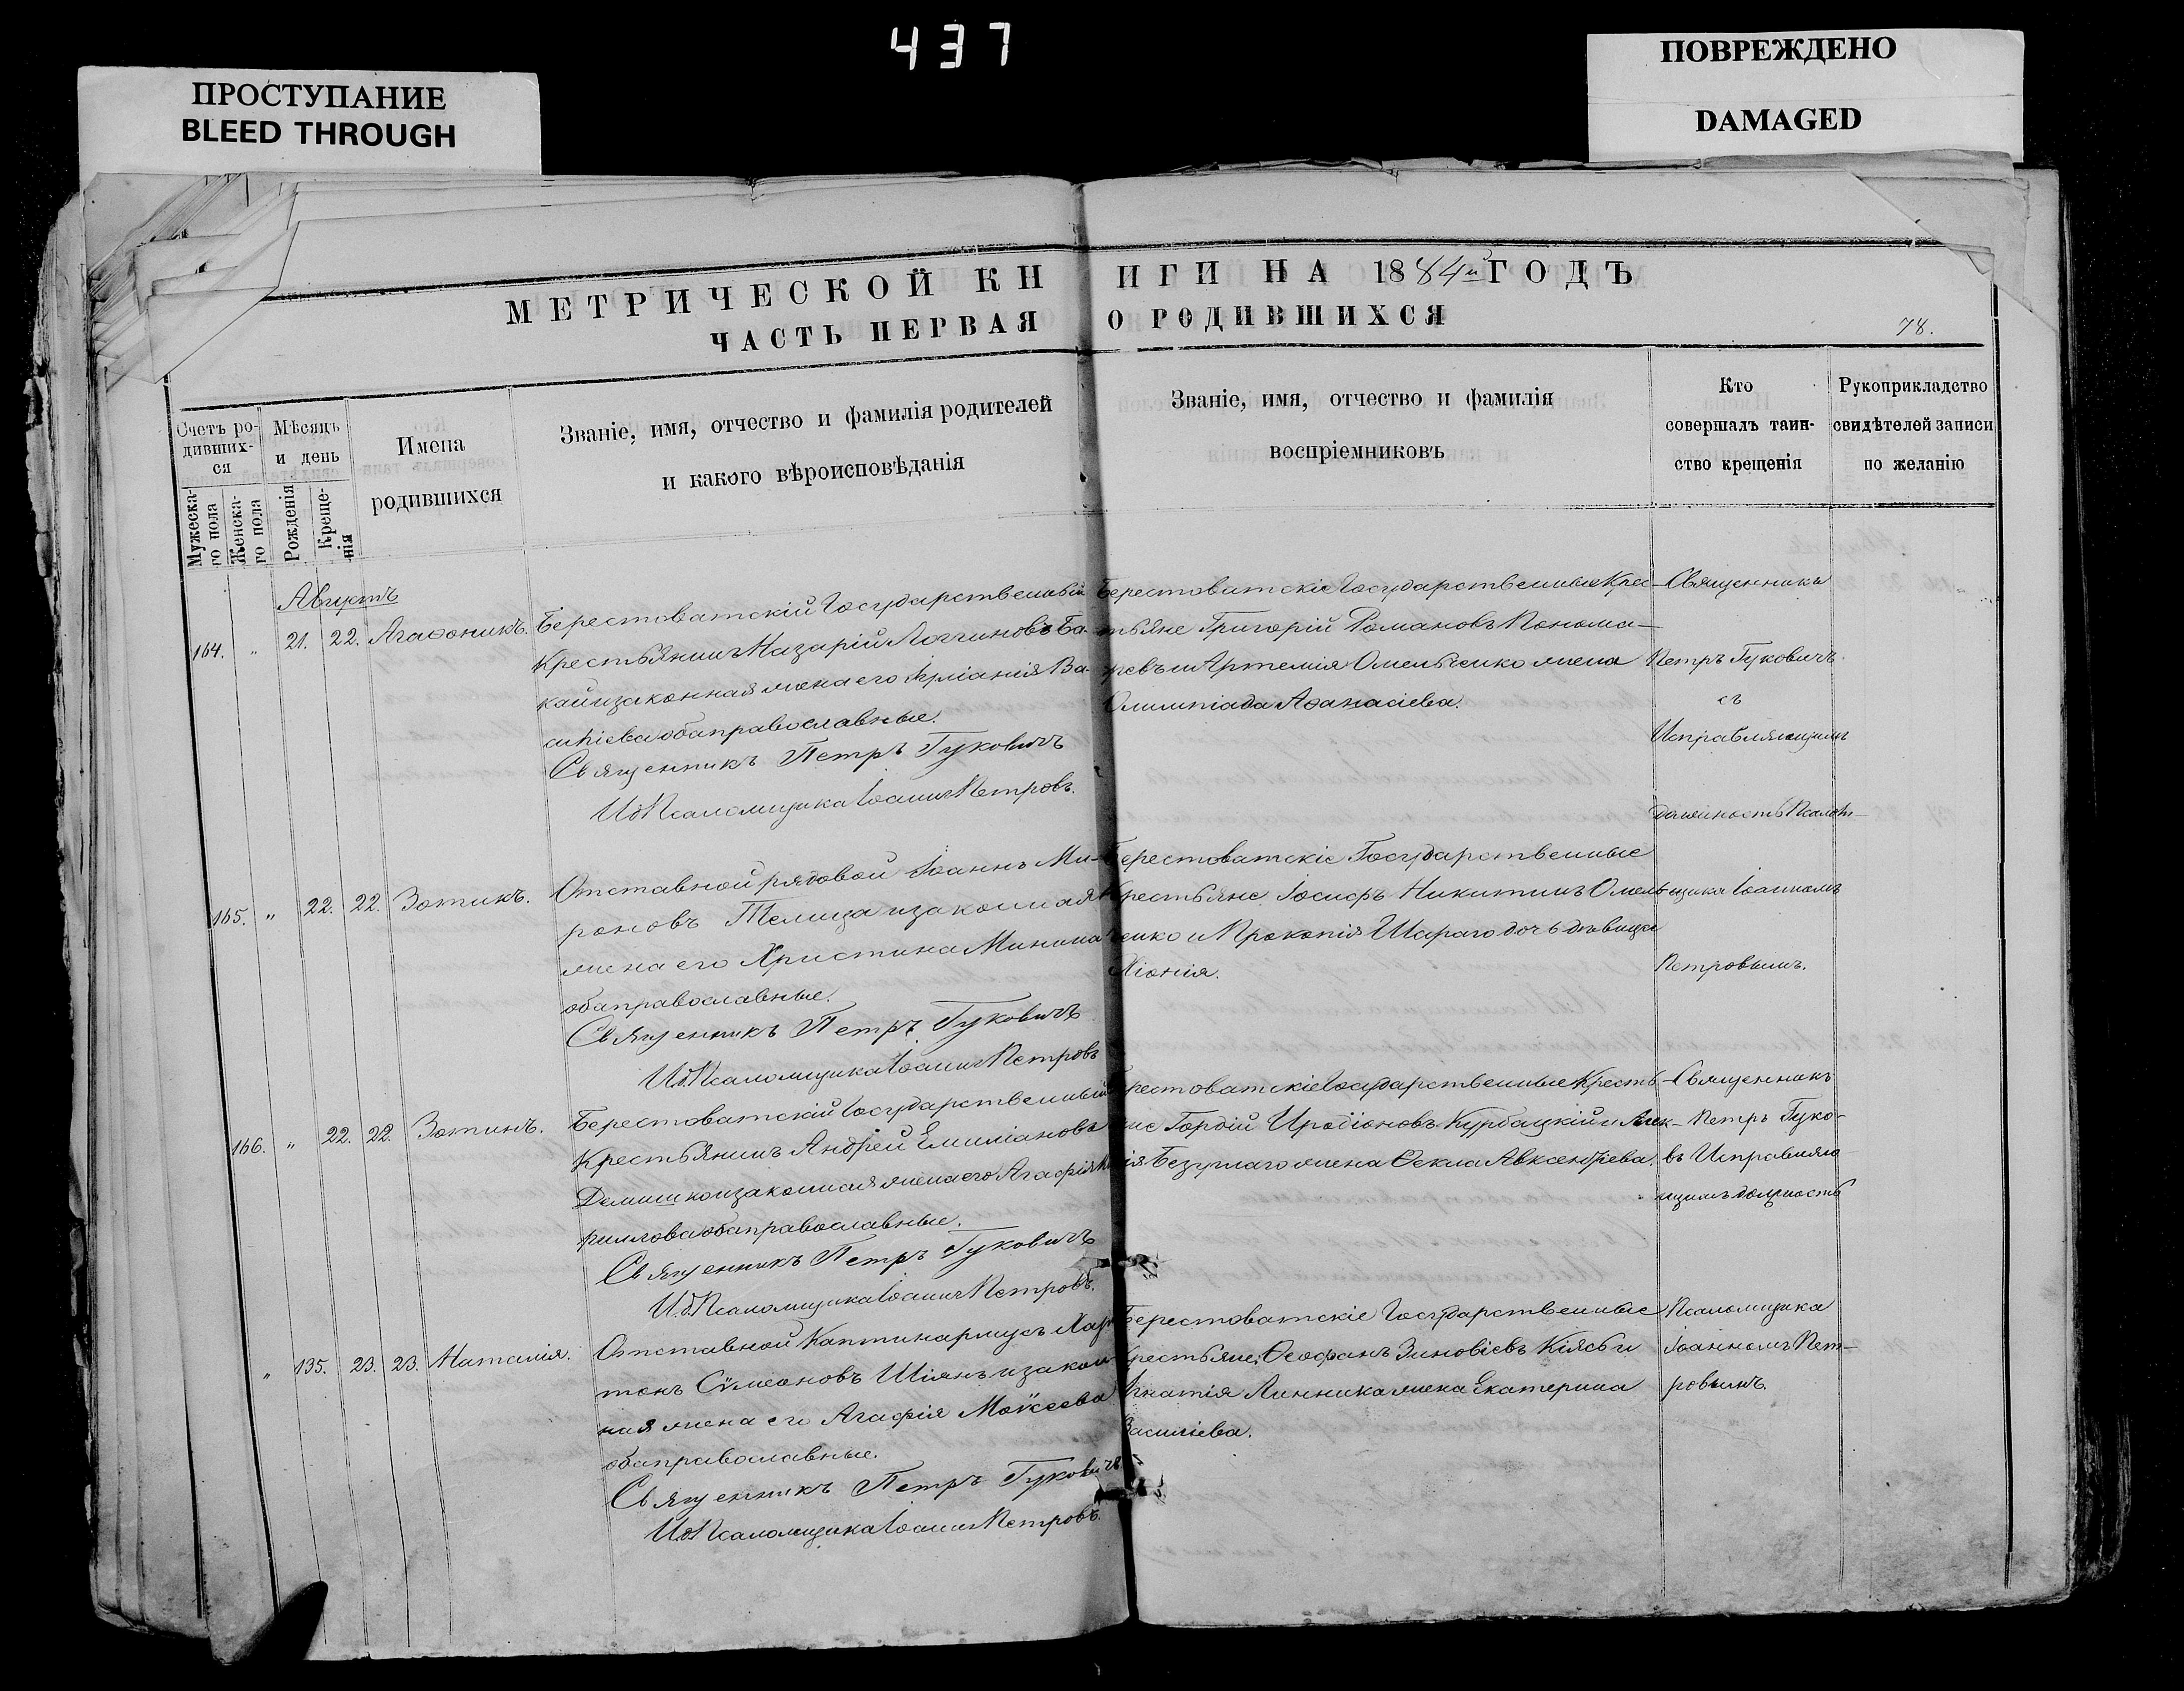 437
ПРОСТУПАНИЕ
BLEED THROUGH
ПОВРЕЖДЕНО
DAMAGED
МЕТРИЧЕСКОЙ КНИГИ НА 1884й ГОДЪ
ЧАСТЬ ПЕРВАЯ О РОДИВШИХСЯ
78.
Счетъ ро-
дивших-
ся
Мужеска-
го пола
Женска-
го пола
Мѣсяцъ
и день
Рожденія
Креще-
нія
Имена
родившихся
Званіе, имя, отчество и фамилія родителей
и какого вѣроисповѣданія
Званіе, имя, отчество и фамилія
воспріемниковъ
Кто
совершалъ таин-
ство крещенія
Рукоприкладство
свидѣтелей записи
по желанію
Августъ
164. " 21. 22. Агаѳоникъ.
Берестоватскій Государственный
Крестьянинъ Назарій Логгиновъ Ба-
кай и законная жена его
обаправославные.
Священникъ Петръ Гуковичъ
И.д. Псаломщика Іоаннъ Петровъ.
Берестоватскіе Государственные Крес-
тьяне Григорій Романовъ Понома-
ревъ и Артемія Омельченко жена
Олимпіада Аѳанасіева.
Священникъ
Петръ Гуковичъ
съ
Исправляющимъ
должность Псалом-
щика Іоанномъ
Петровымъ.
165. " 22. 22. Зотикъ.
Отставной рядовой Іоаннъ Ми-
роновъ Телица и законная
жена его Христина Минина
обаправославные.
Священникъ Петръ Гуковичъ
И.д. Псаломщика Іоаннъ Петровъ
Берестоватскіе Государственные
Крестьяне Іосифъ Никитинъ Омель-
ченко и Прокопія Шараго дочь дѣвица
Хіонія.
166. " 22. 22. Зотикъ.
Берестоватскій Государственный
Крестьянинъ Андрей Емиліановъ
Демишко и законная жена его Агафія Ки-
риллова обаправославные.
Священникъ Петръ Гуковичъ
И.д. Псаломщика Іоаннъ Петровъ.
Берестоватскіе Государственные Кресть-
яне Гордій Иродіоновъ Курбацкій и Алек-
сія Безуглаго жена Ѳекла Авксентіева.
Священникъ
Петръ Гуко-
въ Исправляю-
щимъ должность
Псаломщика
Іоанномъ Пет-
ровымъ.
" 135. 23. 23. Наталія.
Отставной Каптинармусъ Хари-
тонъ Сѵмеоновъ Шіянъ и закон-
ная жена его Агафія Моѵсеева
обаправославные.
Священникъ Петръ Гуковичъ
И.д. Псаломщика Іоаннъ Петровъ.
Берестоватскіе Государственные
Крестьяне: Ѳеофанъ Зиновіевъ Кіясь и
Игнатія Линника жена Екатерина
Василіева.